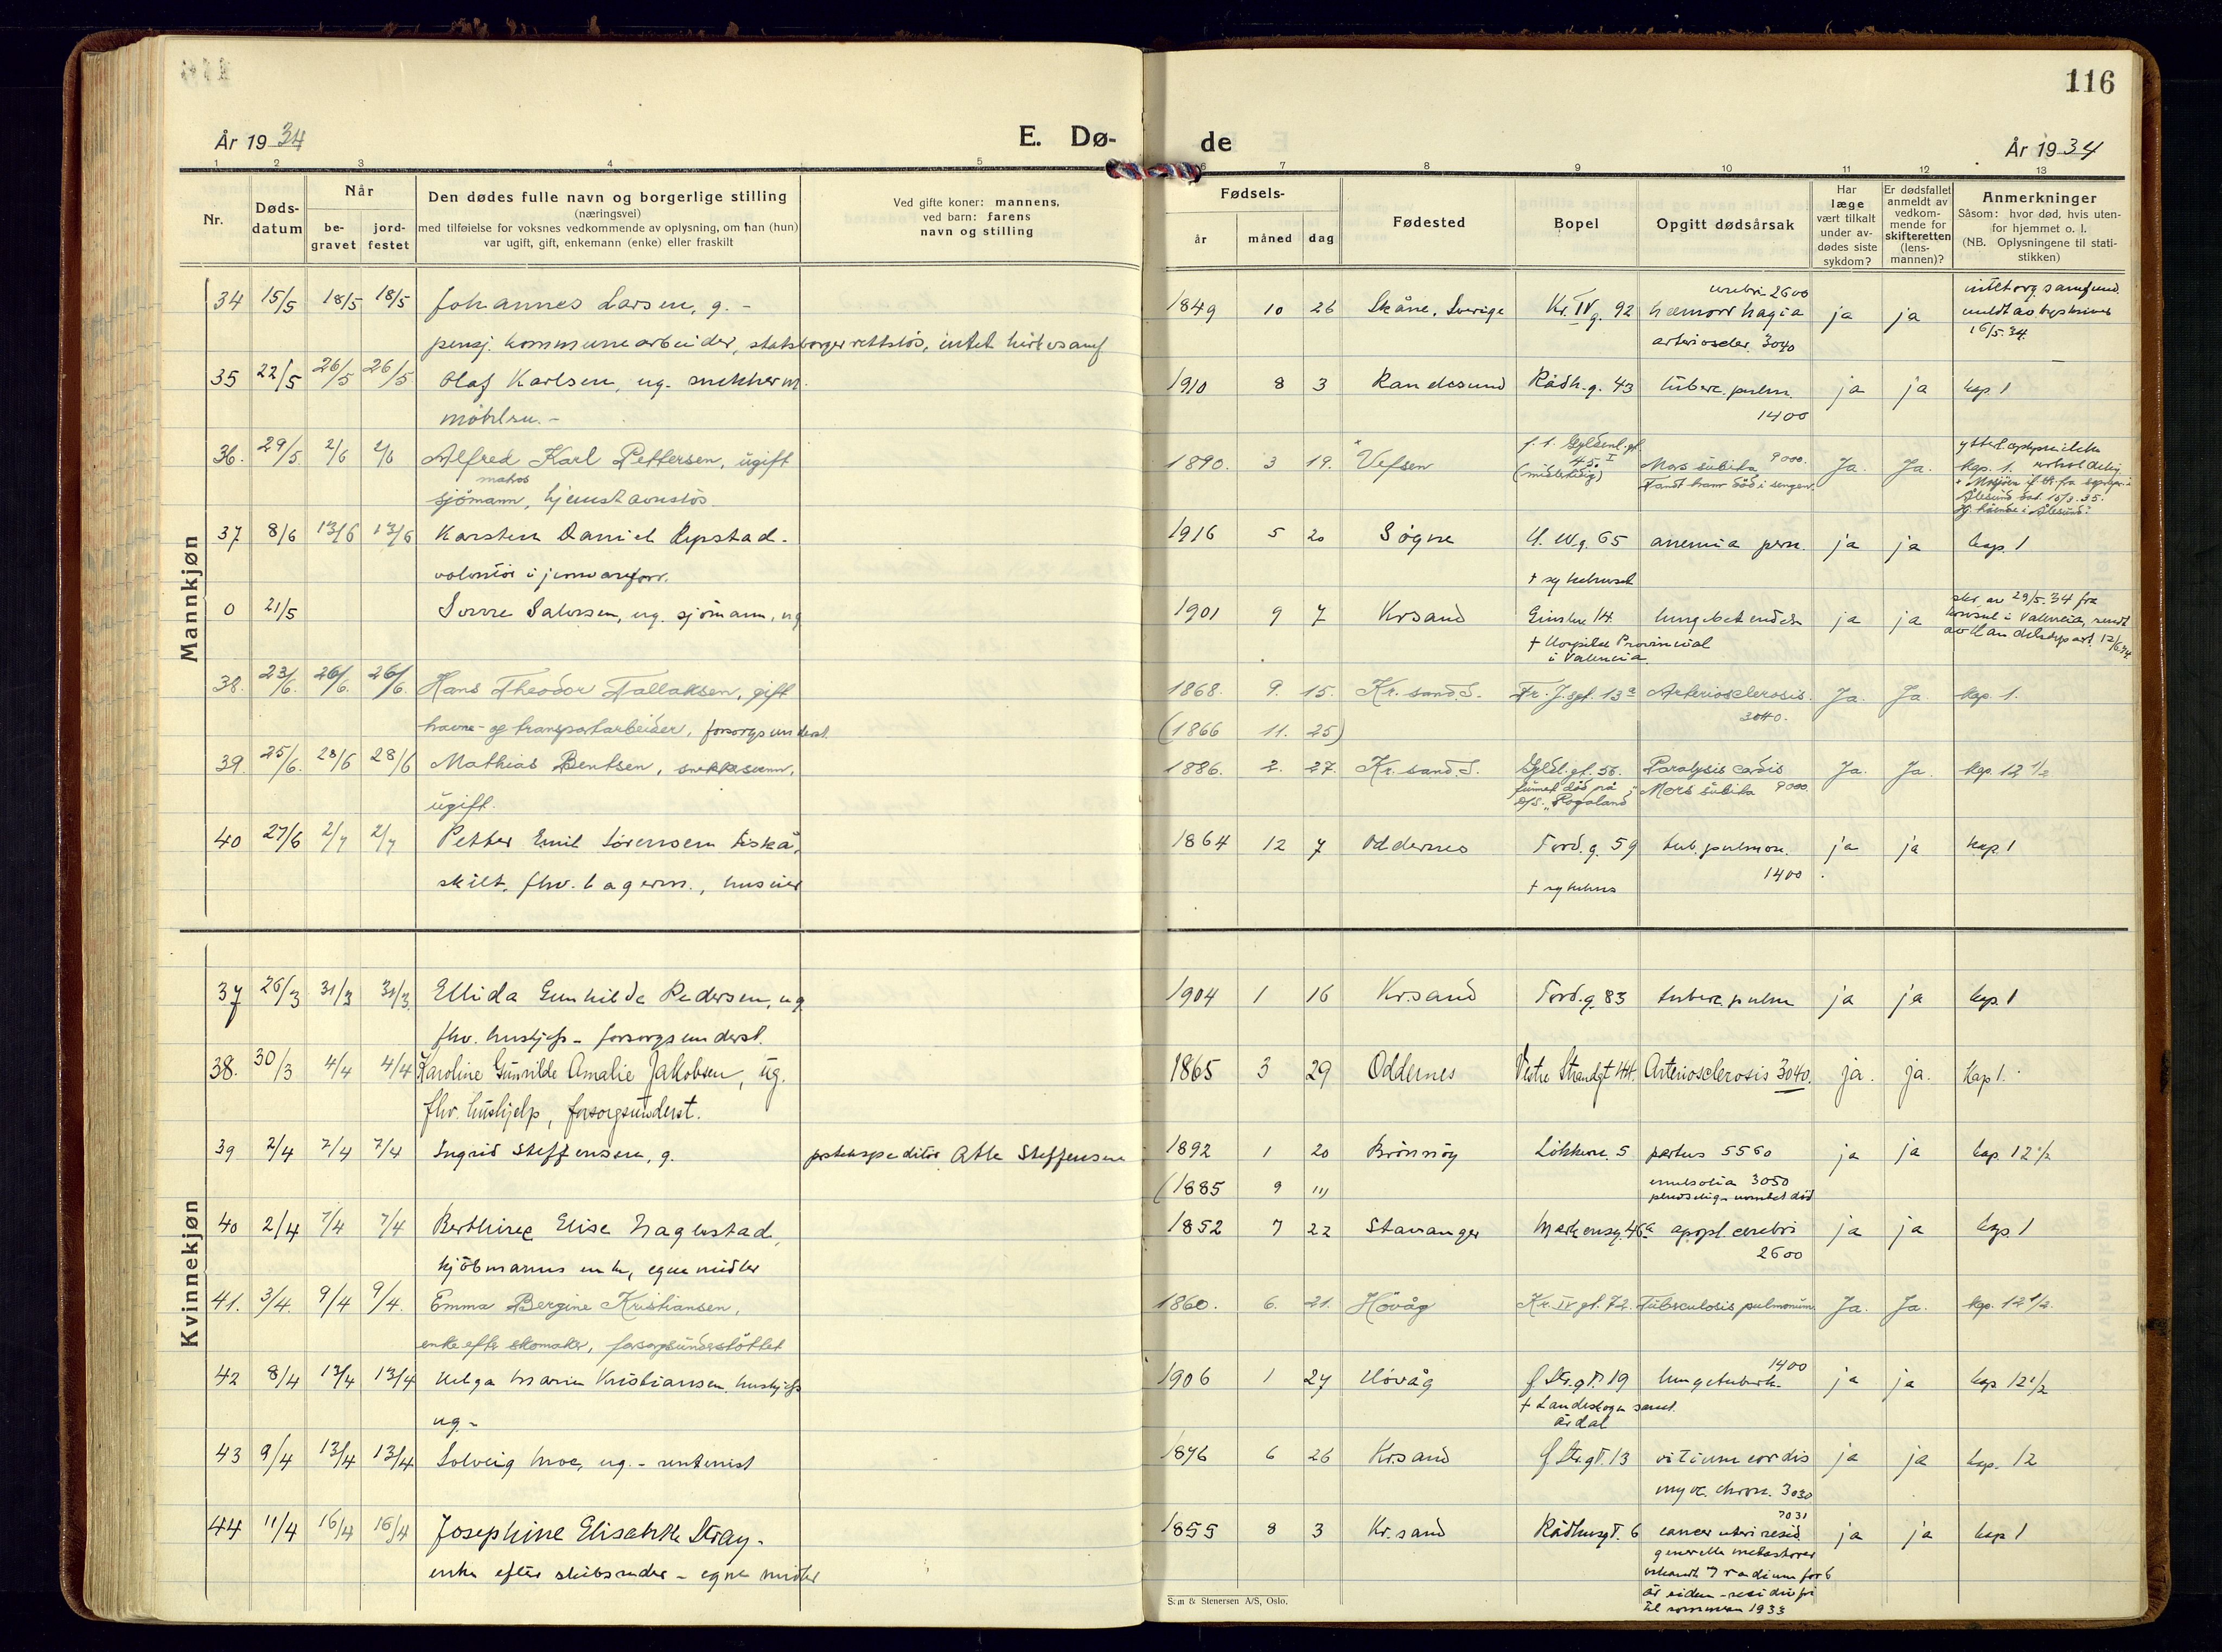 116
År 1934
E. Dø-
de
År 1934
1 2 3 4 5 6 7 8 9 10 11 12 13
Nr.
Døds-
datum
Når
be-
gravet
jord-
festet
Den dødes fulle navn og borgerlige stilling
(næringsvei)
med tilføielse for voksnes vedkommende av oplysning, om han (hun)
var ugift, gift, enkemann (enke) eller fraskilt
Ved gifte koner: mannens,
ved barn: farens
navn og stilling
Fødsels-
år måned dag
Fødested
Bopel
Opgitt dødsårsak
Har
læge
vært tilkalt
under av-
dødes siste
sykdom?
Er dødsfallet
anmeldt av
vedkom-
mende for
skifteretten
(lens-
mannen)?
Anmerkninger
Såsom: hvor død, hvis uten-
for hjemmet o. l.
(NB. Oplysningene til stati-
stikken)
Mannkjøn
34 15/5 18/5 18/5 Johannes Larsen, g. - 1849 10 26 Skåne, Sverige Kr. IV g. 92 hæmorrhagia cerebri 2600 ja ja
pensj. kommunearbeider, statsborgerrettsløs, intet kirkesamf
arterioscler. 3040
16/5.34.
35 22/5 26/5 26/5 Olaf Karlsen, ug. snekkerm. 1910 8 3 Randesund Rådh.g. 43 tuberc. pulm. ja ja kap. 1
1400
36. 29/5 2/6 2/6 Alfred Karl Pettersen, ugift 1890. 3 19. Vefsen f. t. Gyldenl. gt. 45 I (midlertidig) Mors subita 9000. Ja. Ja. kap. 1.
matros
sjömann, hjemstavnslös
Fandt ham död i sengen.
Ålesund dat. 16/3.35.
37 8/6 13/6 13/6 Karsten Daniel Repstad - 1916 5 20 Søgne 65 anemia pern. ja ja kap. 1
volontör i jernvareforr.
† sykehuset
0 21/5 Sverre Salvesen, ug. sjömann, ug 1901 9 7 Krsand 14 lungebetendelse ja ja
† Hospital Provincial
i Valencia
skr. av 29/5.34 fra
konsul i Valencia, sendt
38. 23/6. 26/6. 26/6. Hans Theodor Tallaksen, gift 1868. 9. 15. Kr.sand S. Fr. J. gt. 13a Arteriosclerosis. Ja. Ja. kap. 1.
havne- og transportarbeider, forsorgsunderst.
3040.
(1866 11. 25)
39. 25/6. 28/6 28/6 Mathias Bentsen, 1886. 2. 27. Kr.sand S. Gyldl. gt. 56. Paralysis cordis Ja. Ja. kap. 12 1/2
ugift.
funnet død på
D/S. "Rogaland"
Mors subita 9000.
40 27/6 2/7 2/7 Petter Emil Sørensen Fiskå, 1864 12 7 Oddernes Tord. g. 59 tub. pulmon. ja ja kap. 1
skilt, fhv. lagerm., huseier
† sykehus
1400
Kvinnekjøn
37 26/3 31/3 31/3. Ellida Gunhilde Pedersen, ug 1904 1 16 Kr.sand Tord.g. 83 tuberc. pulm ja ja kap. 1
fhv. hushjelp - forsorgsunderst.
38. 30/3 4/4 4/4 Karoline Gunvilde Amalie Jakobsen, ug. 1865 3 29 Oddernes Vestre Strandgt 44. Arteriosclerosis 3040. ja. ja. kap 1.
fhv. hushjelp, forsorgsunderst.
39 2/4 7/4 7/4 Ingrid Steffensen, g. postekspeditör Atle Steffensen 1892 1 20 Brönnöy Løkkevn. 5 partus 5560 ja ja kap. 12 1/2
(1885 9 11)
3050
40 2/4 7/4 7/4 Berthine Elise Hagestad, 1852 7 22 Stavanger Markensg. 46a apopl. cerebri ja ja kap. 1
kjöbmanns enke, egne midler
2600
41. 3/4. 9/4 9/4. Emma Bergine Kristiansen, 1860. 6. 21. Hövåg Kr. IV gt. 72. Tuberculosis pulmonum. Ja. Ja. kap. 12 1/2.
enke efter skomaker, forsorgsunderstöttet
1400
42 8/4 13/4 13/4 Helga Marie Kristiansen, hushjelp 1906 1 24 Hövåg Str.gt. 19 lungetuberk. ja ja kap. 12 1/2
ug -
† Landeskogen sanat.
årdal
43 9/4 13/4 13/4 Solveig Moe, ug. - rentenist 1876 6 26 Kr.sand Str.gt. 13 vitium cordis ja ja kap. 12
myoc. chron. 3030
44 11/4 16/4 16/4 Josephine Elisabeth Stray - 1855 8 3 Kr.sand Rådhusgt. 6 cancer uteri resid. ja ja kap 1
enke efter skibsreder - egne midler
generelle metastaser
radium for 6
år siden - residiv fri
til sommeren 1933
Sem & Stenersen A/S, Oslo.